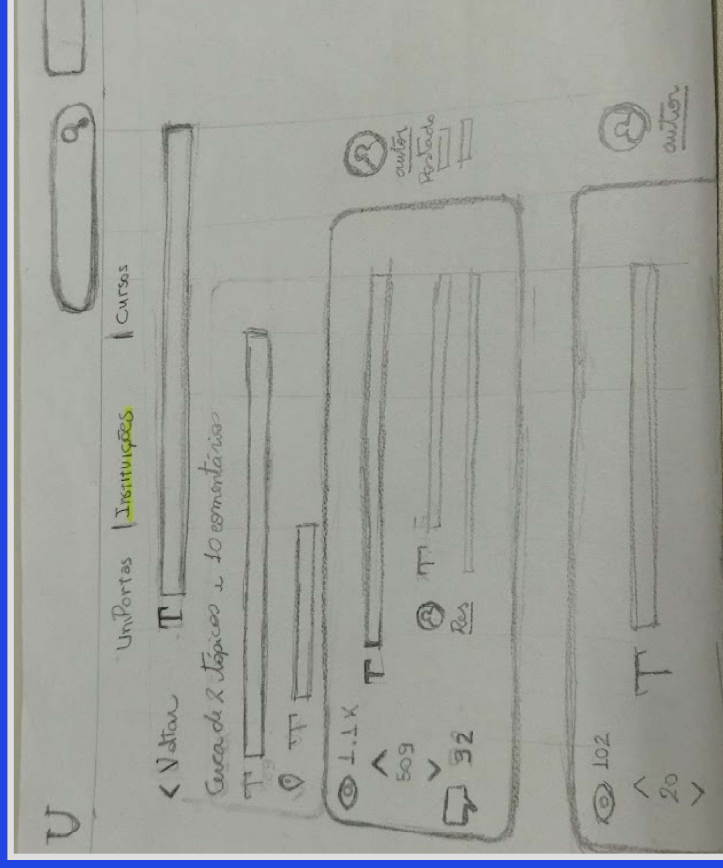 U
UniPortas | Instituições | Cursos
< Voltar T
Cerca de 2 tópicos e 10 comentários
T
T
1.1K
509
92
T
T
Res
autor
Postado
102
20
T
autor